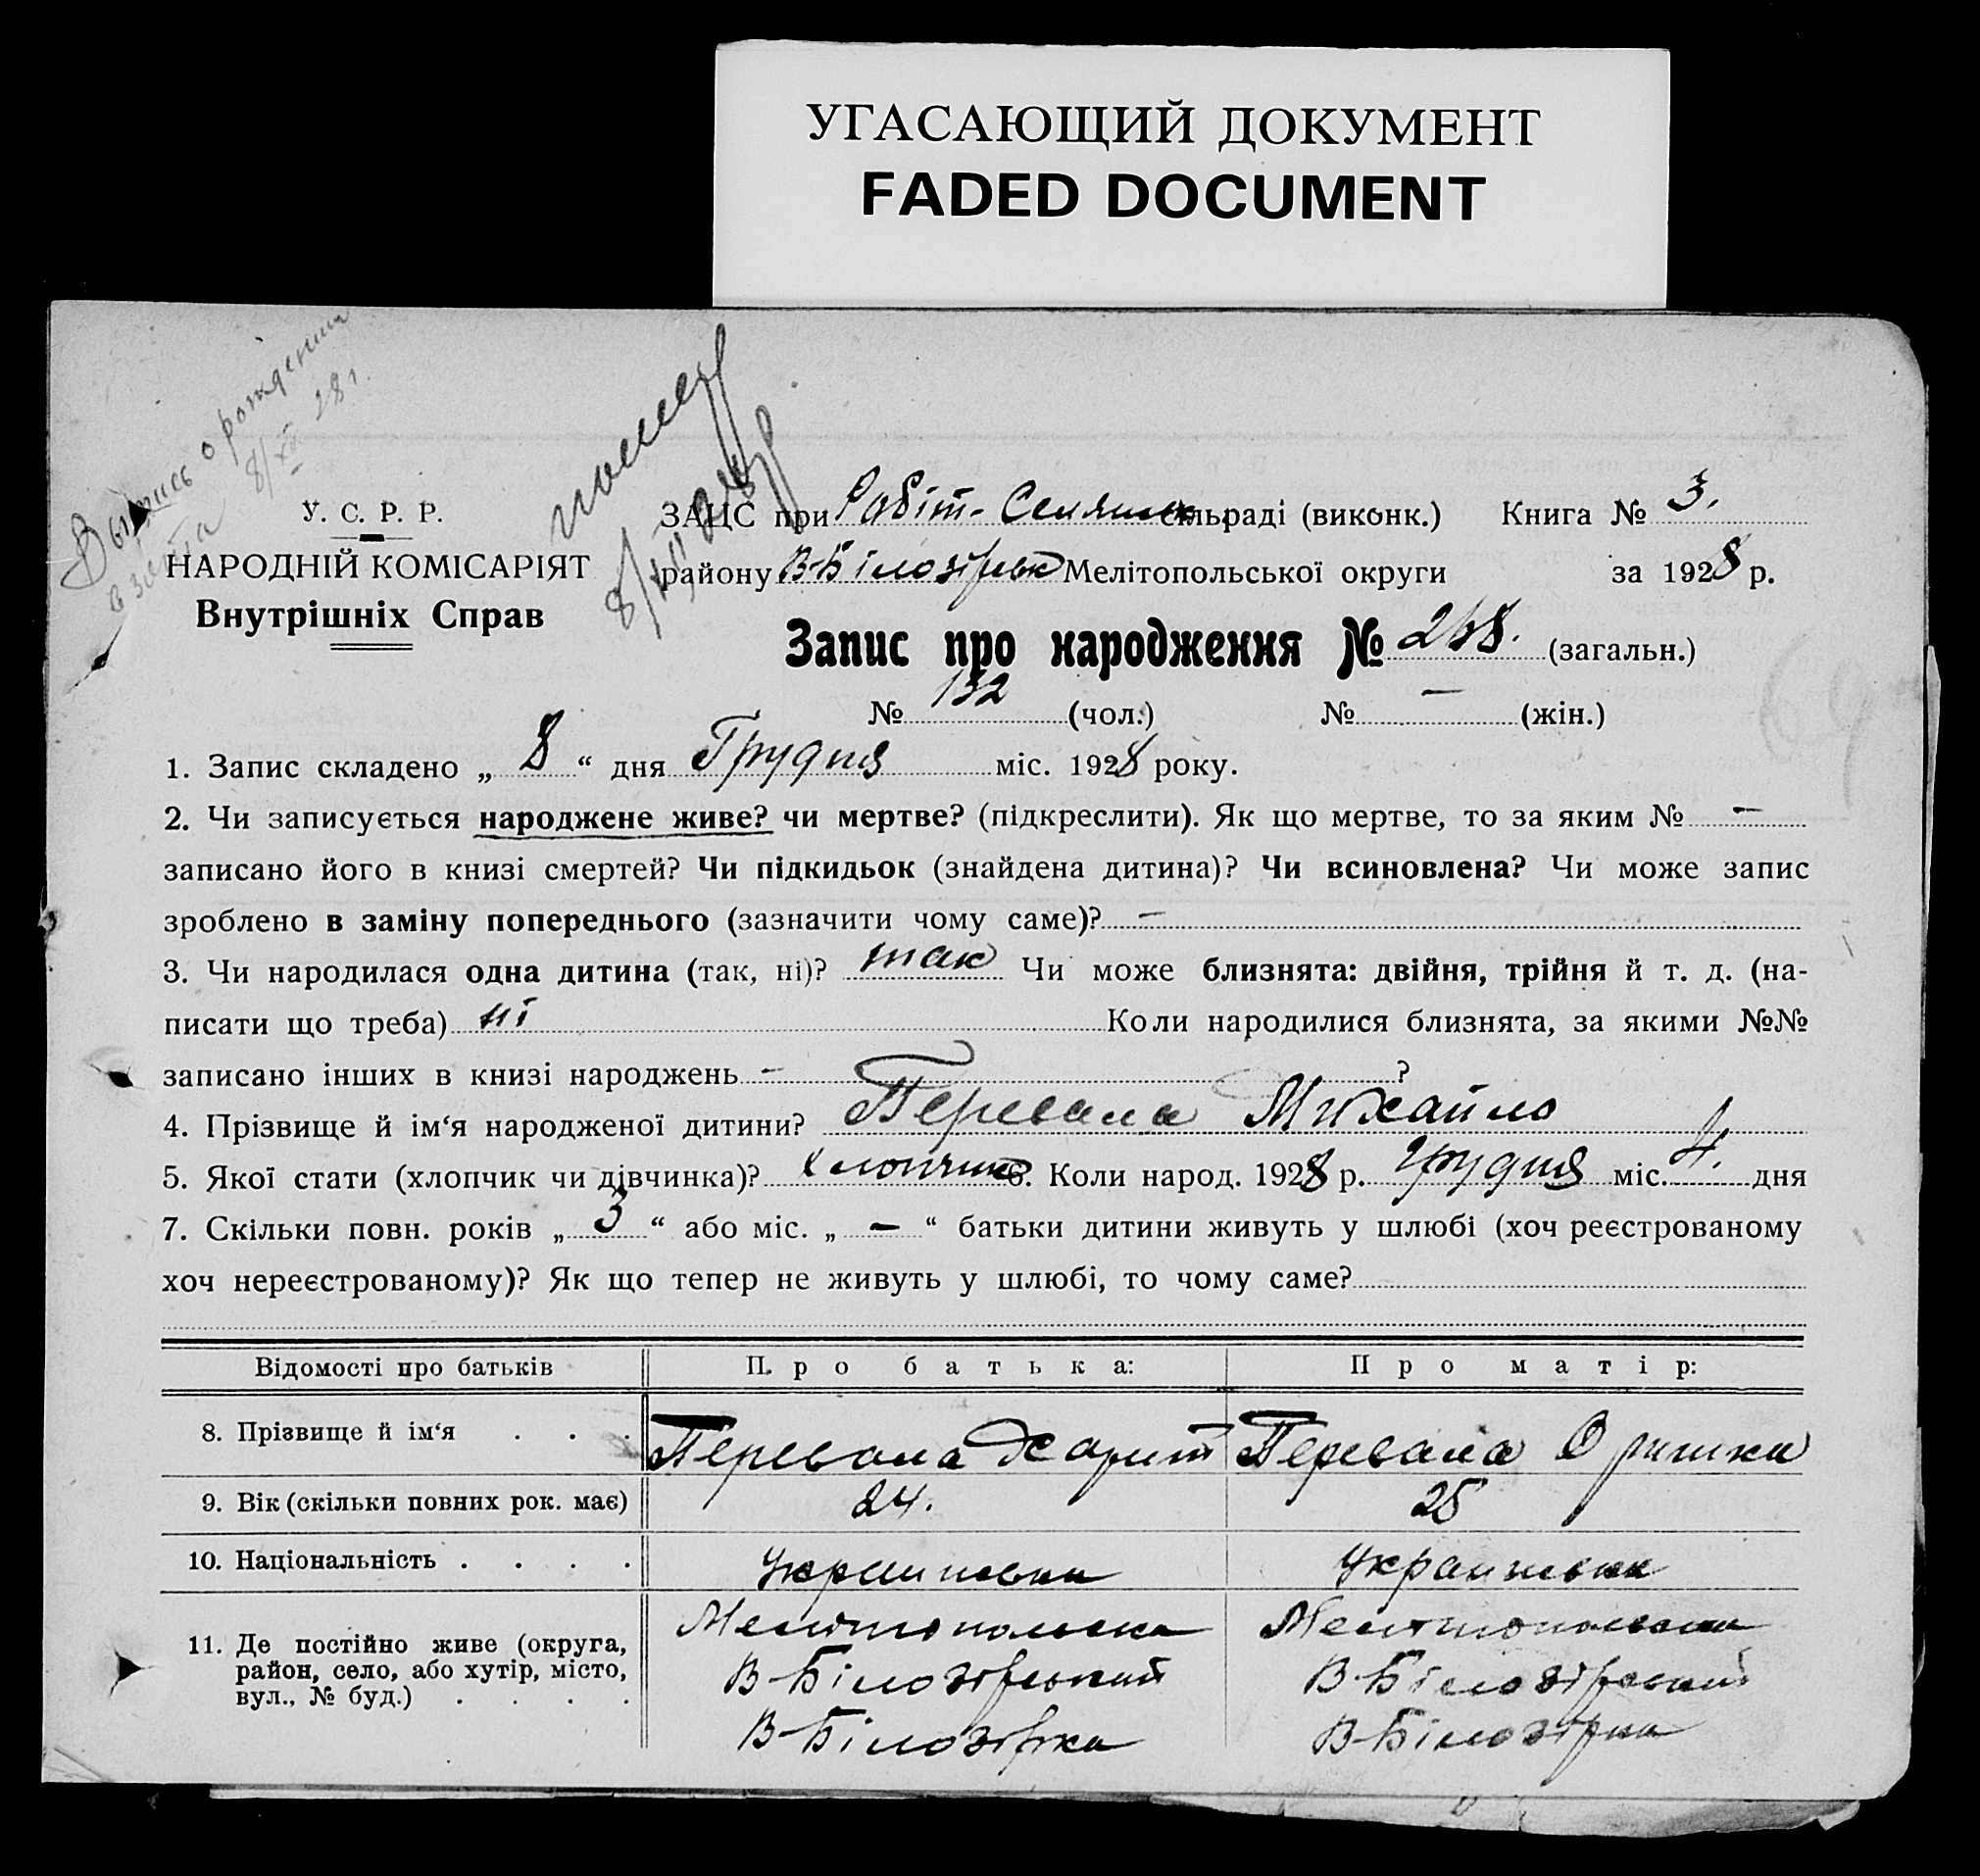 УГАСАЮЩИЙ ДОКУМЕНТ
FADED DOCUMENT
Выпись о рождении
взята 8/XII 28 г.
У. С. Р. Р.
НАРОДНІЙ КОМІСАРІЯТ
Внутрішніх Справ
ЗАЦС при Робіт.-Селянськ. сільраді (виконк.) Книга № 3.
району В-Білозірськ Мелітопольської округи за 1928 р.
Запис про народження № 268. (загальн.)
№ 132 (чол.) № — (жін.)
1. Запис складено „ 8 “ дня Грудня міс. 1928 року.
2. Чи записується народжене живе? чи мертве? (підкреслити). Як що мертве, то за яким № —
записано його в книзі смертей? Чи підкидьок (знайдена дитина)? Чи всиновлена? Чи може запис
зроблено в заміну попереднього (зазначити чому саме)? —
3. Чи народилася одна дитина (так, ні)? так Чи може близнята: двійня, трійня й т. д. (на-
писати що треба) ні Коли народилися близнята, за якими №№
записано інших в книзі народжень – ?
4. Прізвище й ім‘я народженої дитини? Перевала Михайло
5. Якої стати (хлопчик чи дівчинка)? хлопчик 6. Коли народ. 1928 р. грудня міс. 4. дня
7. Скільки повн. років „ 3 “ або міс. „ — “ батьки дитини живуть у шлюбі (хоч реєстрованому
хоч нереєстрованому)? Як що тепер не живуть у шлюбі, то чому саме?
Відомості про батьків Про батька: Про матір:
8. Прізвище й ім‘я . . . Перевала Харит Перевала Оришка
9. Вік (скільки повних рок. має) 24. 25
10. Національність . . . . Украинська Украинська
11. Де постійно живе (округа, Мелітопольська Мелітопольська
район, село, або хутір, місто, В-Білозірський В-Білозірський
вул., № буд.) . . . . В-Білозірка В-Білозірка